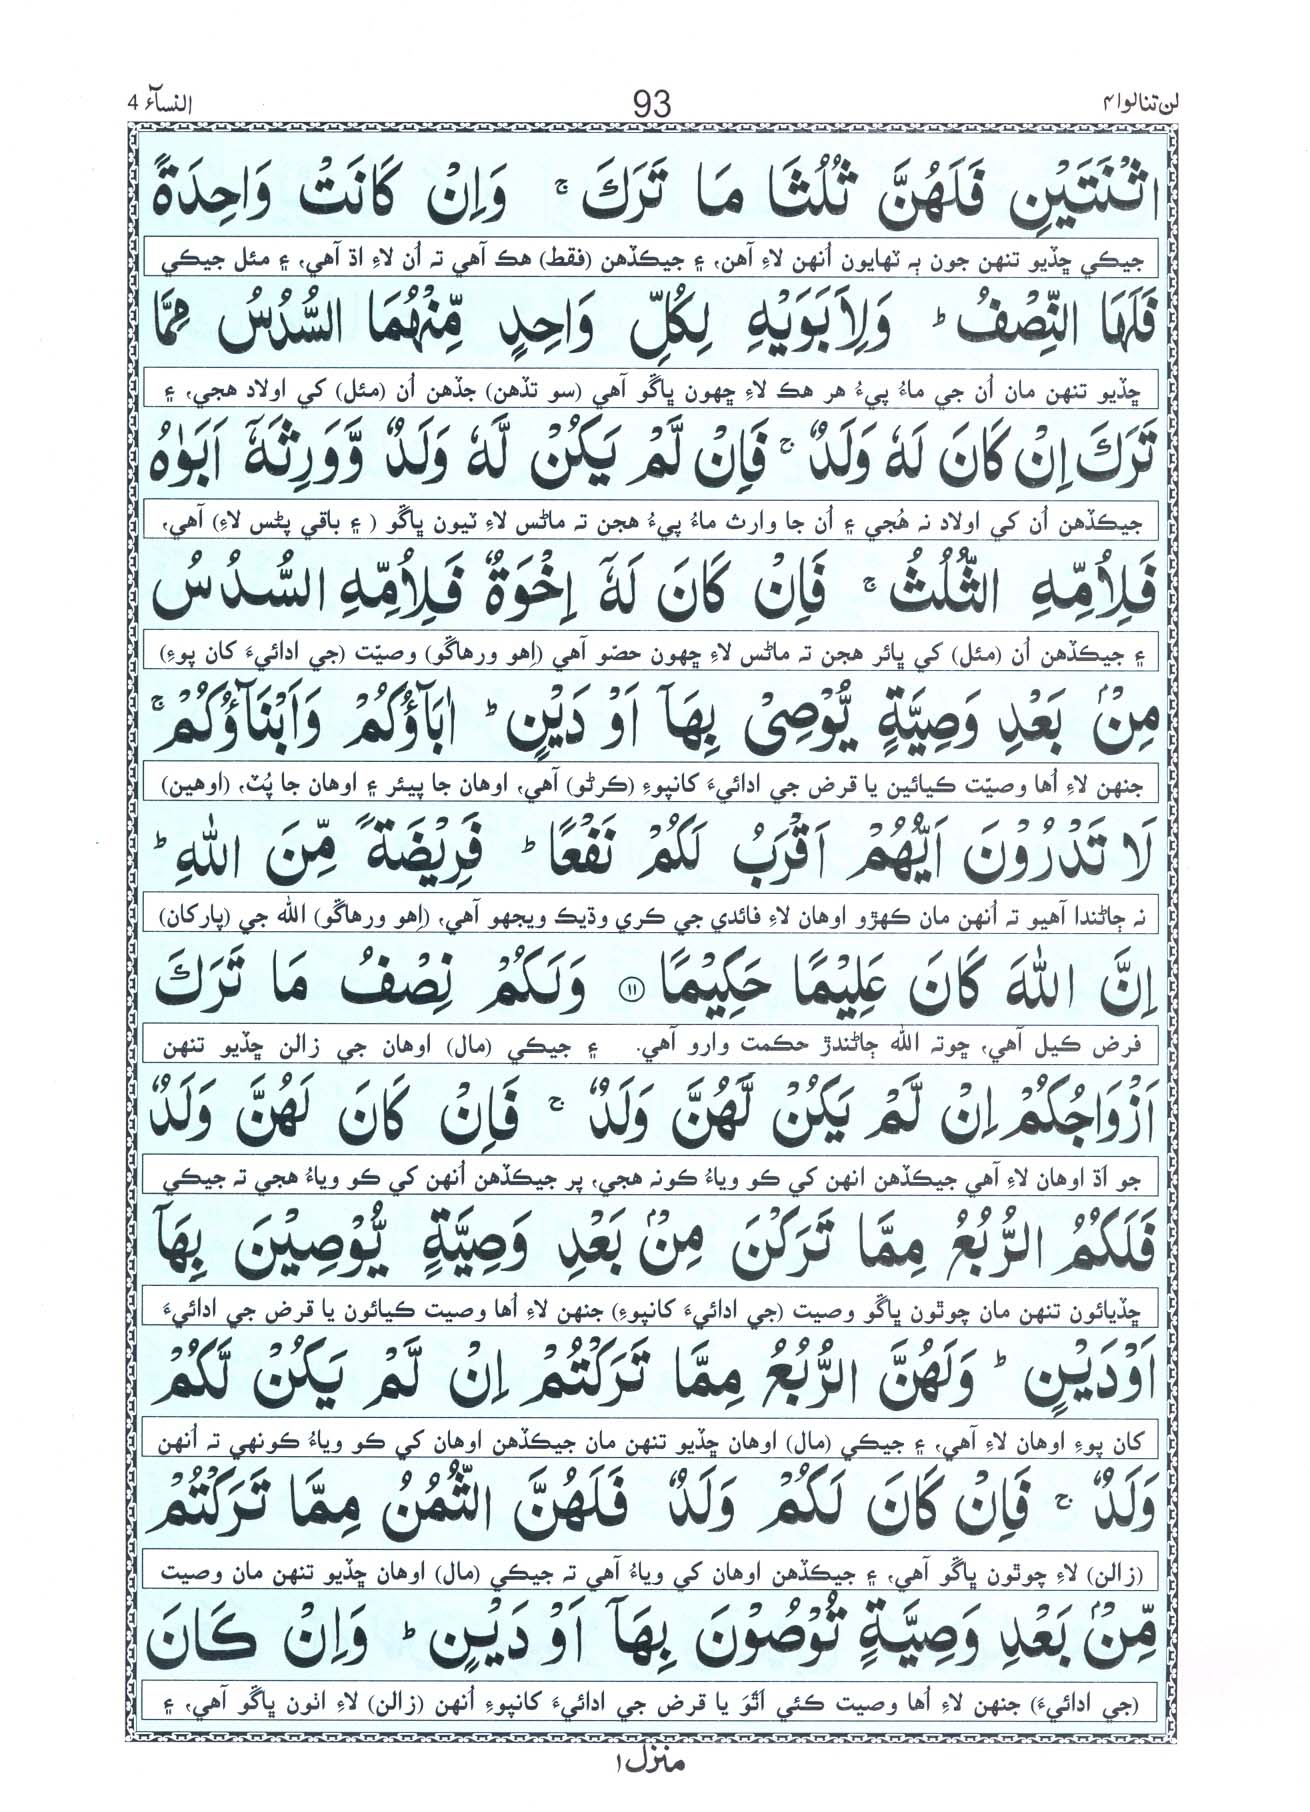 لن تنالوا ۴
93
النسآء 4
اثْنَتَيْنِ فَلَهُنَّ ثُلُثَا مَا تَرَكَ ۚ وَاِنْ كَانَتْ وَاحِدَةً
جيڪي ڇڏيو تنهن جون ٻہ ٽهايون اُنهن لاءِ آهن، ۽ جيڪڏهن (فقط) هڪ آهي تہ اُن لاءِ اڌ آهي، ۽ مئل جيڪي
فَلَهَا النِّصْفُ ؕ وَلِاَبَوَيْهِ لِكُلِّ وَاحِدٍ مِّنْهُمَا السُّدُسُ مِمَّا
ڇڏيو تنهن مان اُن جي ماءُ پيءُ هر هڪ لاءِ ڇهون ڀاڱو آهي (سو تڏهن) جڏهن اُن (مئل) کي اولاد هجي، ۽
تَرَكَ اِنْ كَانَ لَهٗ وَلَدٌ ۚ فَاِنْ لَّمْ يَكُنْ لَّهٗ وَلَدٌ وَّوَرِثَهٗۤ اَبَوٰهُ
جيڪڏهن اُن کي اولاد نہ هُجي ۽ اُن جا وارث ماءُ پيءُ هجن تہ ماڻس لاءِ ٽيون ڀاڱو ( ۽ باقي پڻس لاءِ) آهي،
فَلِاُمِّهِ الثُّلُثُ ۚ فَاِنْ كَانَ لَهٗۤ اِخْوَةٌ فَلِاُمِّهِ السُّدُسُ
۽ جيڪڏهن اُن (مئل) کي ڀائر هجن تہ ماڻس لاءِ ڇهون حصّو آهي (اِهو ورهاڱو) وصيّت (جي ادائيءَ کان پوءِ)
مِنْۢ بَعْدِ وَصِيَّةٍ يُّوْصِيْ بِهَاۤ اَوْ دَيْنٍ ؕ اٰبَآؤُكُمْ وَاَبْنَآؤُكُمْ ۚ
جنهن لاءِ اُها وصيّت ڪيائين يا قرض جي ادائيءَ کانپوءِ (ڪرڻو) آهي، اوهان جا پيئر ۽ اوهان جا پُٽ، (اوهين)
لَا تَدْرُوْنَ اَيُّهُمْ اَقْرَبُ لَكُمْ نَفْعًا ؕ فَرِيْضَةً مِّنَ اللّٰهِ ؕ
نہ ڄاڻندا آهيو تہ اُنهن مان ڪهڙو اوهان لاءِ فائدي جي ڪري وڌيڪ ويجهو آهي، (اِهو ورهاڱو) الله جي (پارکان)
اِنَّ اللّٰهَ كَانَ عَلِيْمًا حَكِيْمًا ۝۱۱ وَلَكُمْ نِصْفُ مَا تَرَكَ
فرض ڪيل آهي، ڇوتہ الله ڄاڻندڙ حڪمت وارو آهي. ۽ جيڪي (مال) اوهان جي زالن ڇڏيو تنهن
اَزْوَاجُكُمْ اِنْ لَّمْ يَكُنْ لَّهُنَّ وَلَدٌ ۚ فَاِنْ كَانَ لَهُنَّ وَلَدٌ
جو اَڌ اوهان لاءِ آهي جيڪڏهن انهن کي ڪو وياءُ ڪونہ هجي، پر جيڪڏهن اُنهن کي ڪو وياءُ هجي تہ جيڪي
فَلَكُمُ الرُّبُعُ مِمَّا تَرَكْنَ مِنْۢ بَعْدِ وَصِيَّةٍ يُّوْصِيْنَ بِهَاۤ
ڇڏيائون تنهن مان چوٿون ڀاڱو وصيت (جي ادائيءَ کانپوءِ) جنهن لاءِ اُها وصيت ڪيائون يا قرض جي ادائيءَ
اَوْ دَيْنٍ ؕ وَلَهُنَّ الرُّبُعُ مِمَّا تَرَكْتُمْ اِنْ لَّمْ يَكُنْ لَّكُمْ
کان پوءِ اوهان لاءِ آهي، ۽ جيڪي (مال) اوهان ڇڏيو تنهن مان جيڪڏهن اوهان کي ڪو وياءُ ڪونهي تہ اُنهن
وَلَدٌ ۚ فَاِنْ كَانَ لَكُمْ وَلَدٌ فَلَهُنَّ الثُّمُنُ مِمَّا تَرَكْتُمْ
(زالن) لاءِ چوٿون ڀاڱو آهي، ۽ جيڪڏهن اوهان کي وياءُ آهي تہ جيڪي (مال) اوهان ڇڏيو تنهن مان وصيت
مِّنْۢ بَعْدِ وَصِيَّةٍ تُوْصُوْنَ بِهَاۤ اَوْ دَيْنٍ ؕ وَاِنْ كَانَ
(جي ادائيءَ) جنهن لاءِ اُها وصيت ڪئي اَٿَوَ يا قرض جي ادائيءَ کانپوءِ اُنهن (زالن) لاءِ اٺون ڀاڱو آهي، ۽
منزل ۱